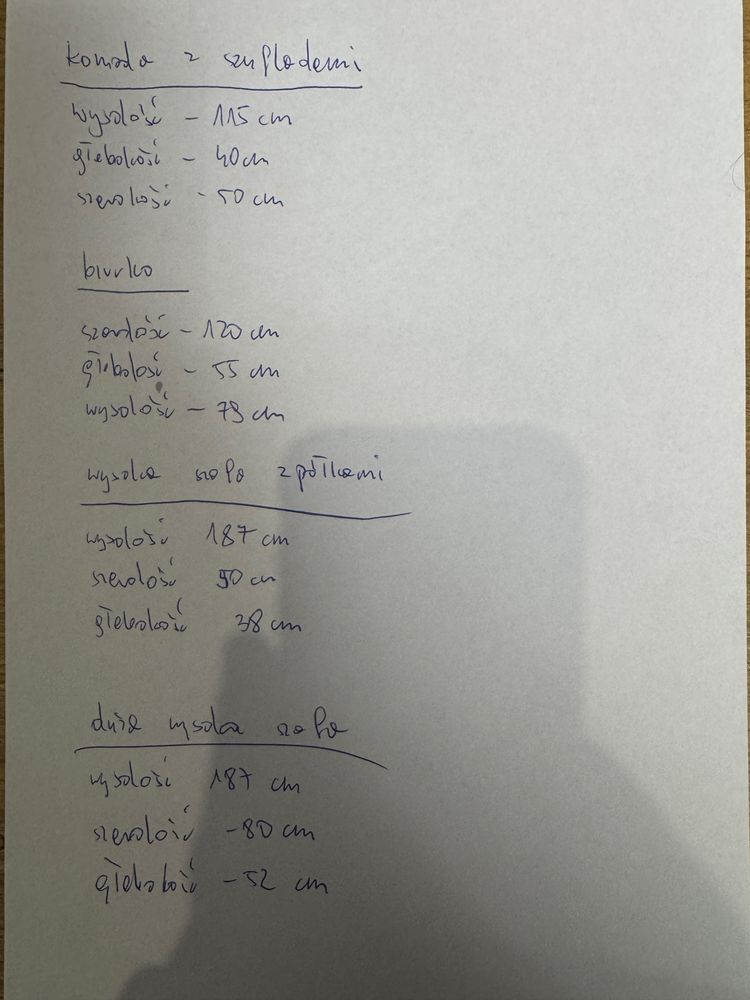 komoda z szufladami
wysokość – 115 cm
głębokość – 40 cm
szerokość - 50 cm
biurko
szerokość – 120 cm
głębokość – 55 cm
wysokość – 79 cm
wysoka szafa z półkami
wysokość 187 cm
szerokość 50 cm
głębokość 38 cm
duża wysoka szafa
wysokość 187 cm
szerokość – 80 cm
głębokość – 52 cm